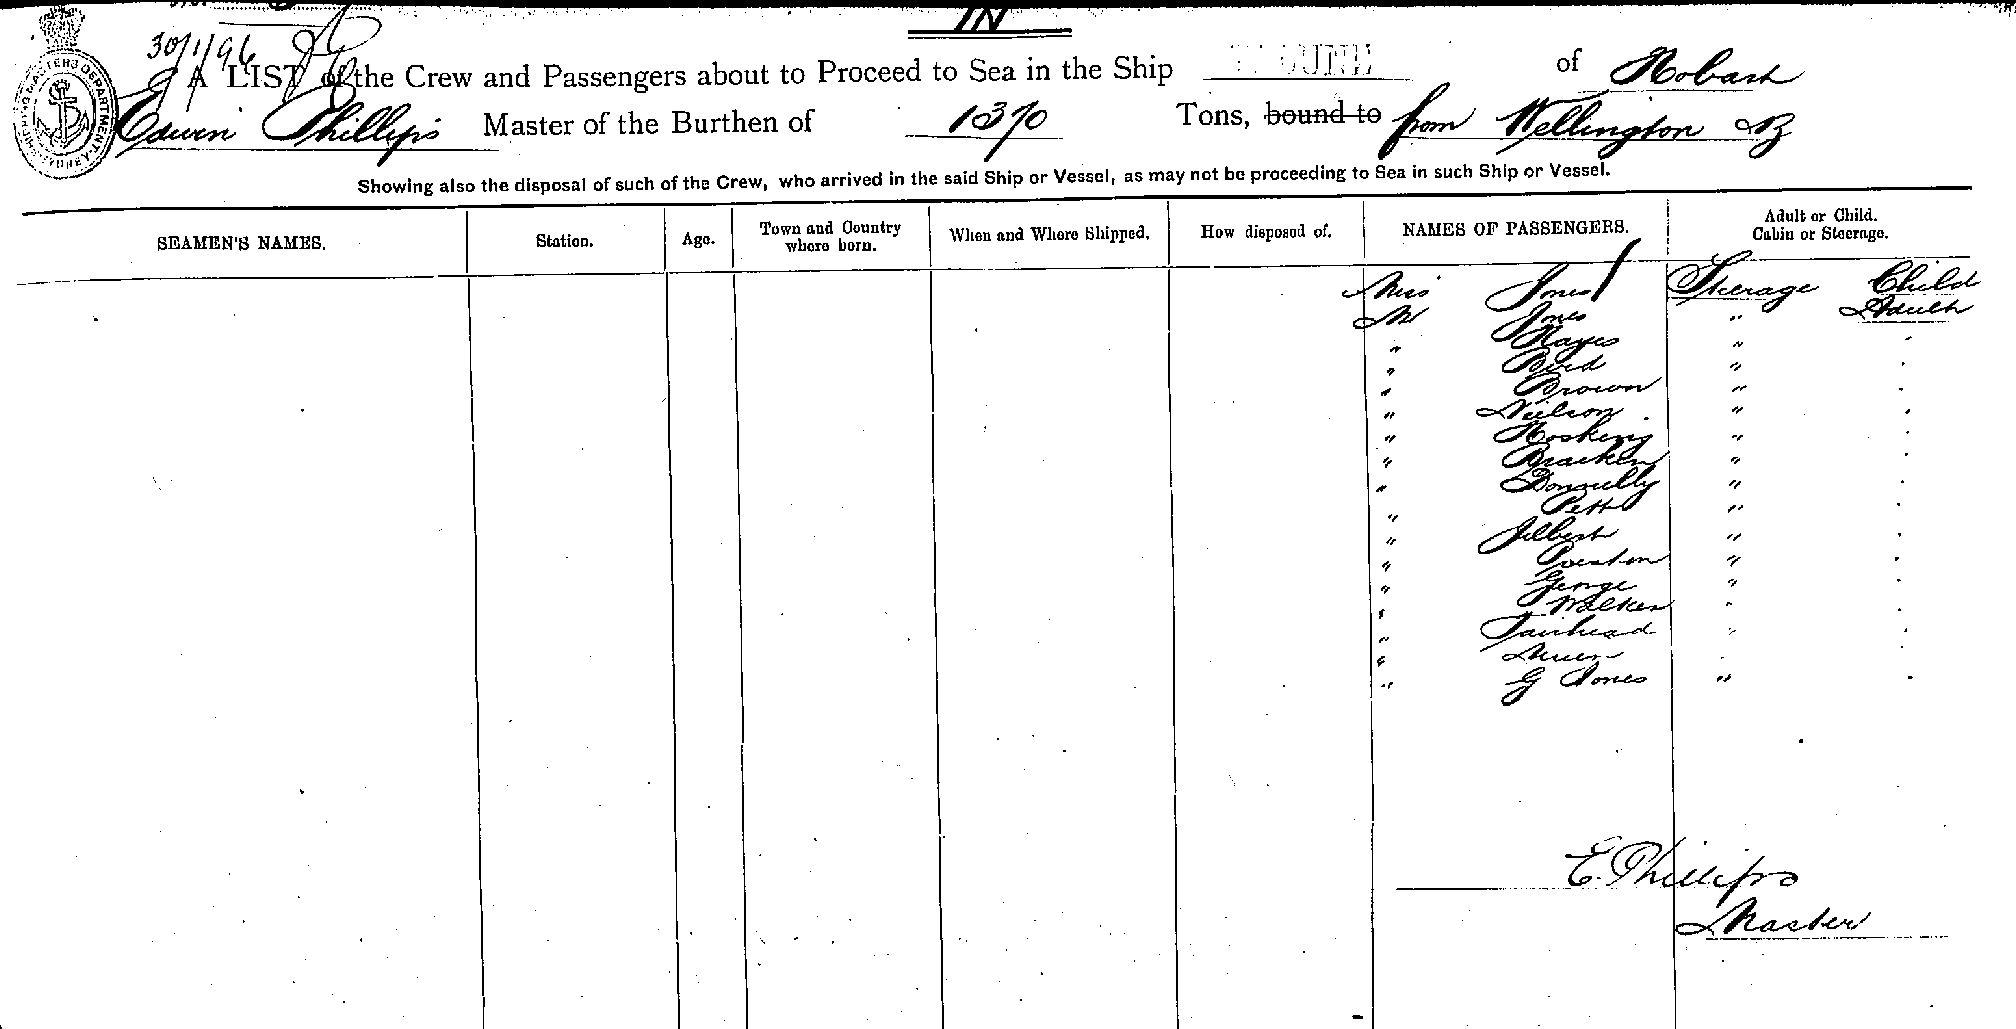 IN
30/1/96
A LIST of the Crew and Passengers about to Proceed to Sea in the Ship of Hobart
Edwin Phillips Master of the Burthen of 1370 Tons, bound to from Wellington NZ
Showing also the disposal of such of the Crew, who arrived in the said Ship or Vessel, as may not be proceeding to Sea in such Ship or Vessel.
SEAMEN'S NAMES. Station. Age. Town and Country where born. When and Where Shipped. How disposed of. NAMES OF PASSENGERS. Adult or Child. Cabin or Steerage.
Miss Jones Steerage Child
Mr Jones " Adult
" Hayes " "
" Bird " "
" Brown " "
" Neilson " "
" Hosking " "
" Bracken " "
" Donnelly " "
" Pett " "
" Jilbert " "
" Preston " "
" George " "
" Walker " "
" Fairhead " "
" " "
" G Jones " "
E. Phillips
Master